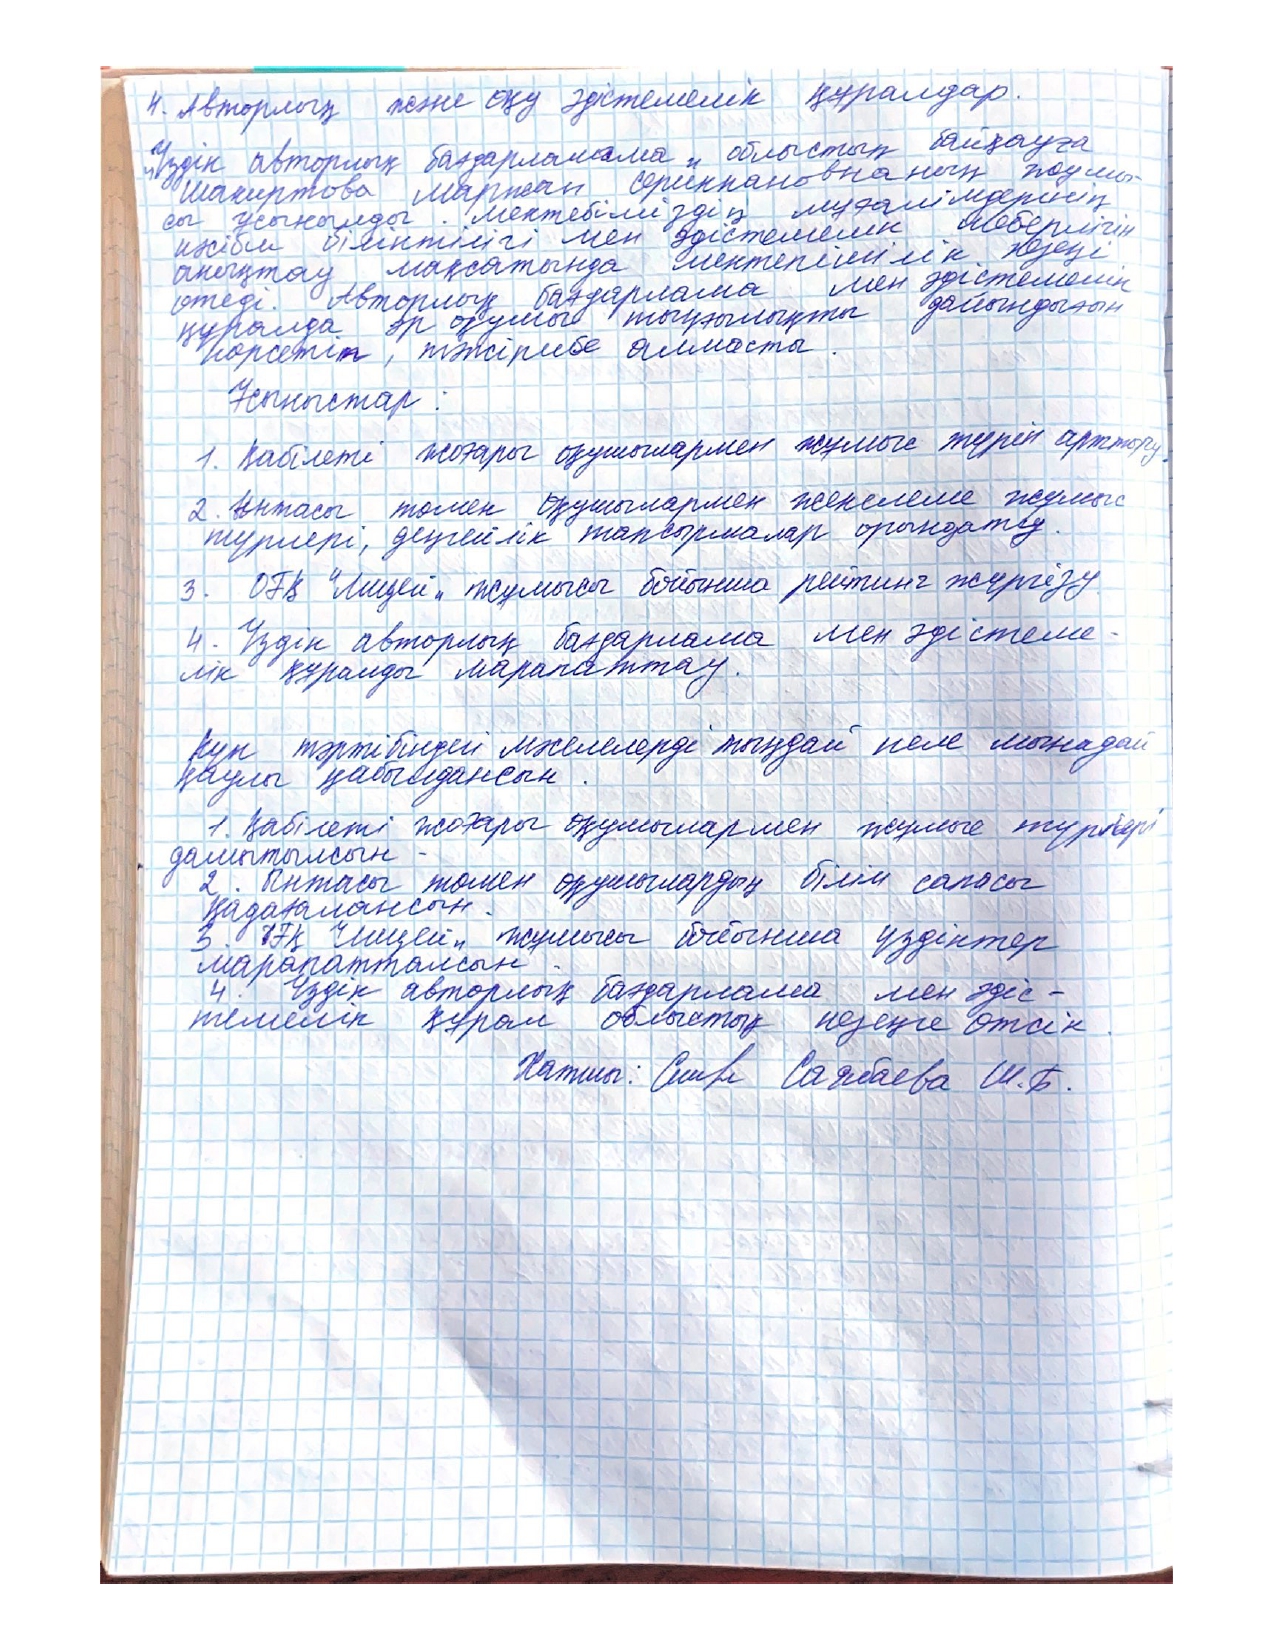 4. Авторлық және оқу әдістемелік құралдар.
"Үздік авторлық бағдарламама" облыстық байқауға
Шакиртова Маржан Серикпановнаның жұмы-
сы ұсынылды. Мектебіміздің мұғалімдерінің
кәсіби біліктілігі мен әдістемелік шеберлігін
анықтау мақсатында мектепішілік кезеңі
өтеді. Авторлық бағдарлама мен әдістемелік
құралда әр оқушы тыңғылықты дайындығын
көрсетіп, тәжірибе алмасты.
Ұсыныстар:
1. Қабілеті жоғары оқушылармен жұмыс түрін арттыру.
2. Ынтасы төмен оқушылармен жекелеме жұмыс
түрлері, деңгейлік тапсырмалар орындату.
3. ОҒҚ "Лицей" жұмысы бойынша рейтинг жүргізу.
4. Үздік авторлық бағдарлама мен әдістеме-
лік құралды марапаттау.
Күн тәртібіндегі мәселелерді тыңдай келе мынадай
қаулы қабылдансын.
1. Қабілеті жоғары оқушылармен жұмыс түрлері
дамытылсын -
2. Ынтасы төмен оқушылардың білім сапасы
қадағалансын.
3. ОҒҚ "Лицей" жұмысы бойынша үздіктер
марапатталсын.
4. Үздік авторлық бағдарлама мен әдіс-
темелік құрал облыстық кезеңге өтсін.
Хатшы: Сажбаева Ш.Б.